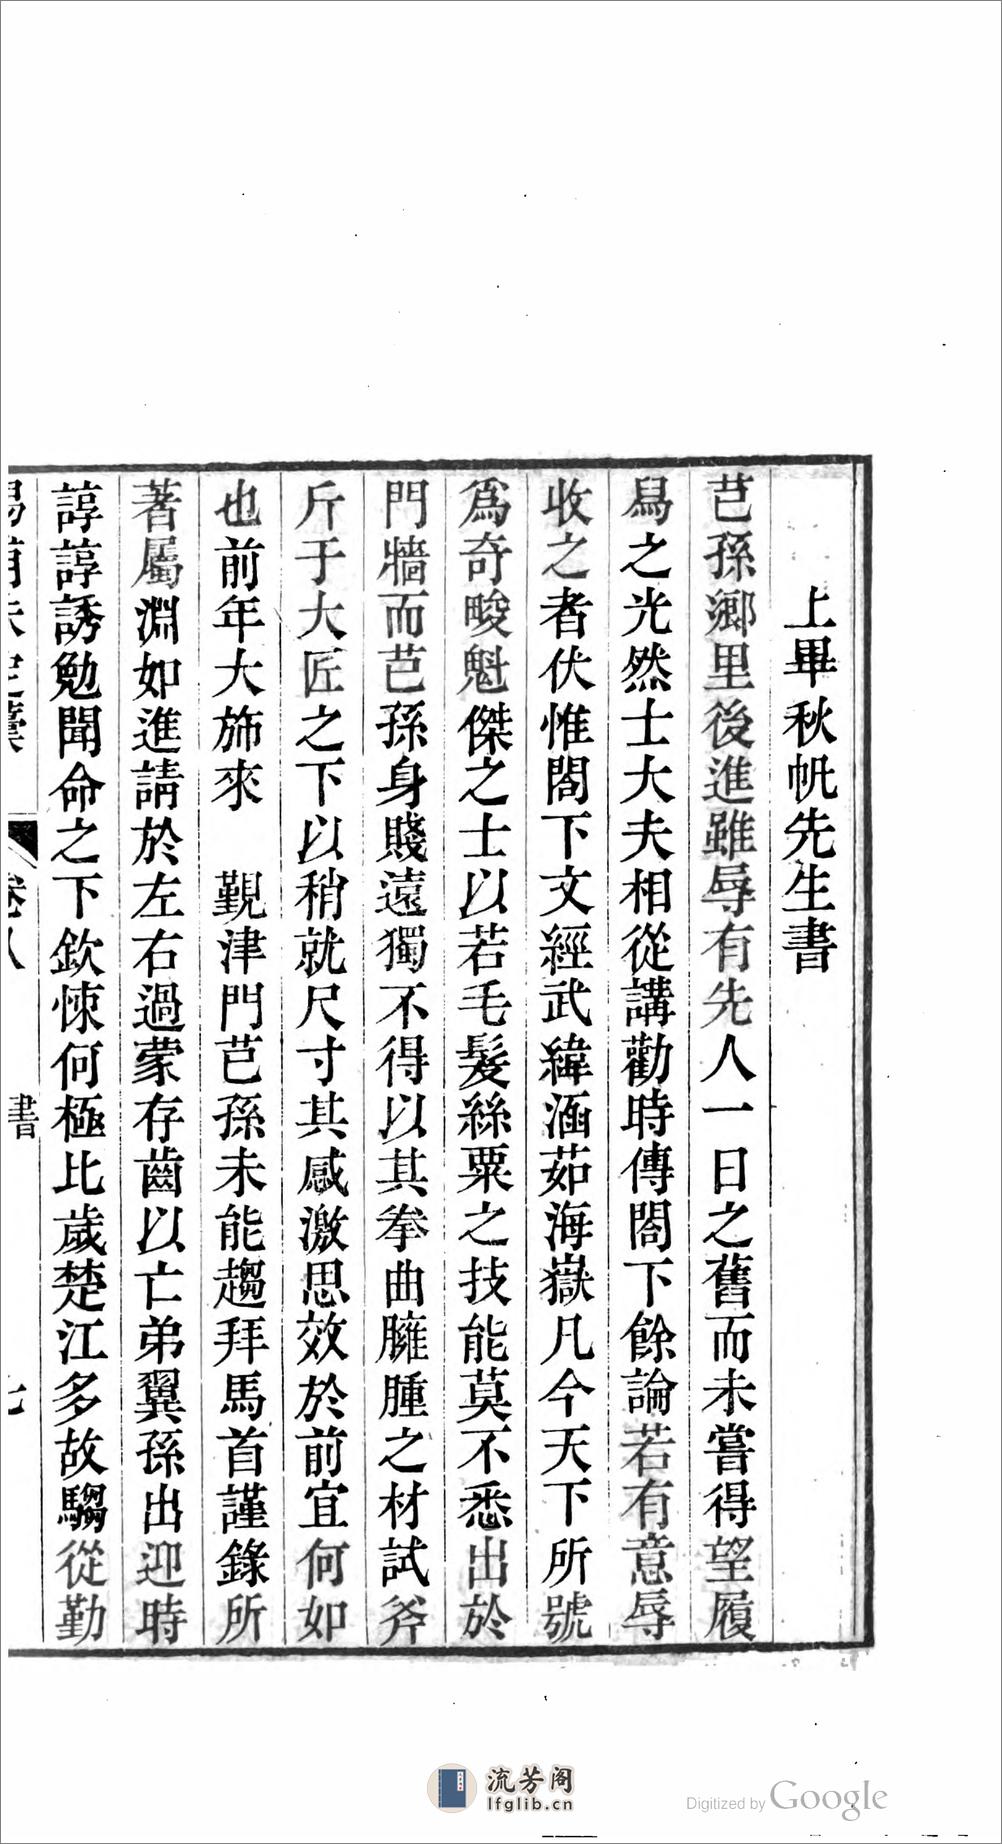 上畢秋帆先生書
芑孫鄉里後進雖辱有先人一日之舊而未嘗得望履
舃之光然士大夫相從講勸時傳閤下餘論若有意辱
收之者伏惟閤下文經武緯涵茹海嶽凡今天下所號
爲奇畯魁傑之士以若毛髮絲粟之技能莫不悉出於
門牆而芑孫身賤遠獨不得以其拳曲臃腫之材試斧
斤于大匠之下以稍就尺寸其感激思效於前宜何如
也前年大斾來 覲津門芑孫未能趨拜馬首謹錄所
著屬淵如進請於左右過蒙存齒以亡弟翼孫出迎時
諄諄誘勉聞命之下欽悚何極比歲楚江多故騶從勤
卷八 書 七
流芳阁
lfglib.cn
Digitized by Google